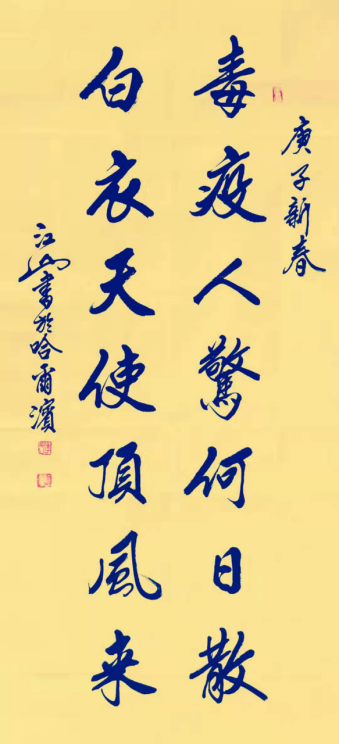 庚子新春
毒疫人驚何日散
白衣天使頂風来
江山書於哈爾濱